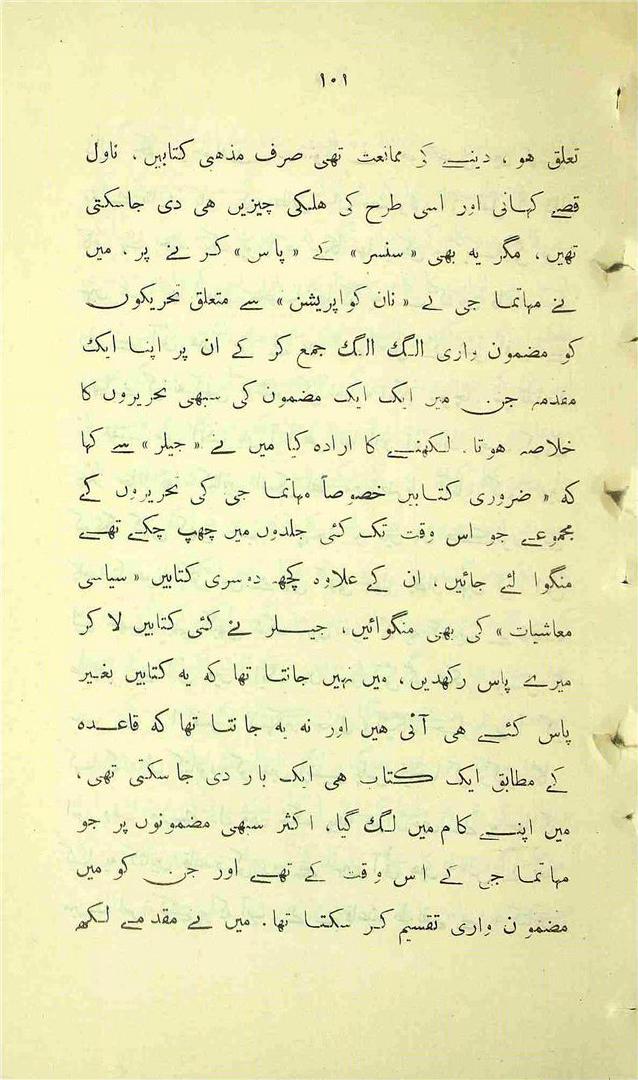 ۱۰۱
تعلق ہو، دینے کی ممانعت تھی صرف مذہبی کتابیں، ناول
قصے کہانی اور اسی طرح کی ہلکی چیزیں ہی دی جاسکتی
تھیں، مگر یہ بھی «سنسر» کے «پاس» کرنے پر، میں
نے مہاتما جی کے «نان کواپریشن» سے متعلق تحریکوں
کو مضمون واری الگ الگ جمع کر کے ان پر اپنا ایک
مقدمہ جن میں ایک ایک مضمون کی سبھی تحریروں کا
خلاصہ ہوتا۔ لکھنے کا ارادہ کیا میں نے «جیلر» سے کہا
کہ «ضروری کتابیں خصوصاً مہاتما جی کی تحریروں کے
مجموعے جو اس وقت تک کئی جلدوں میں چھپ چکے تھے
منگوا لئے جائیں، ان کے علاوہ کچھ دوسری کتابیں «سیاسی
معاشیات» کی بھی منگوائیں، جیلر نے کئی کتابیں لا کر
میرے پاس رکھدیں، میں نہیں جانتا تھا کہ یہ کتابیں بغیر
پاس کئے ہی آئی ہیں اور نہ یہ جانتا تھا کہ قاعدہ
کے مطابق ایک کتاب ہی ایک بار دی جاسکتی تھی،
میں اپنے کام میں لگ گیا، اکثر سبھی مضمونوں پر جو
مہاتما جی کے اس وقت کے تھے اور جن کو میں
مضمون واری تقسیم کر سکتا تھا۔ میں نے مقدمے لکھ